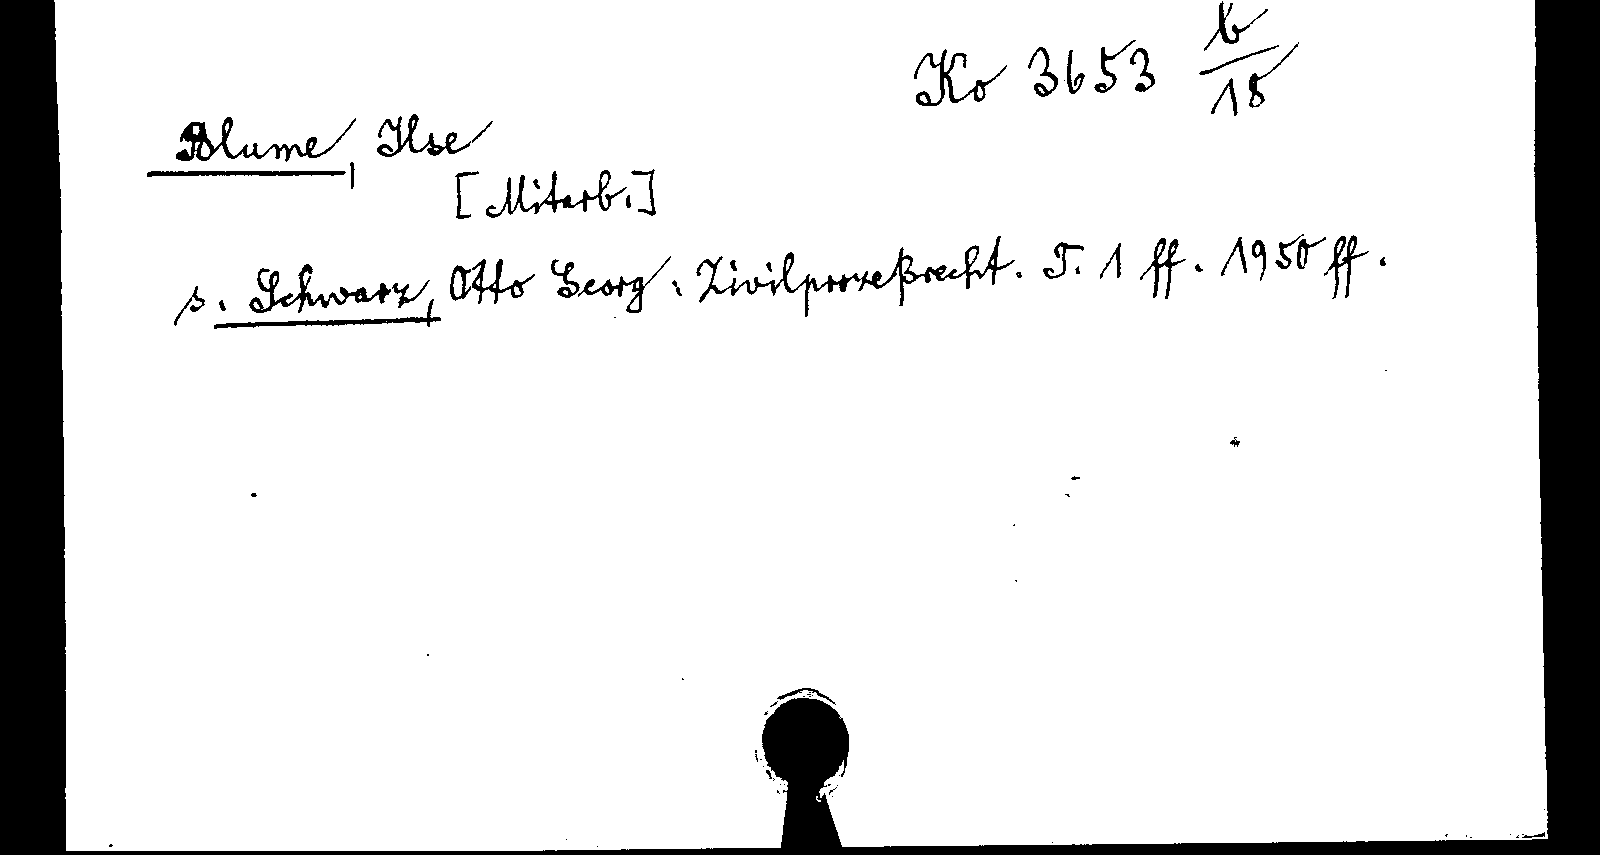 Ko 3653 b/18
Blume, Ilse
[Mitarb.]
s. Schwarz, Otto Georg: Zivilprozeßrecht. T. 1 ff. 1950 ff.